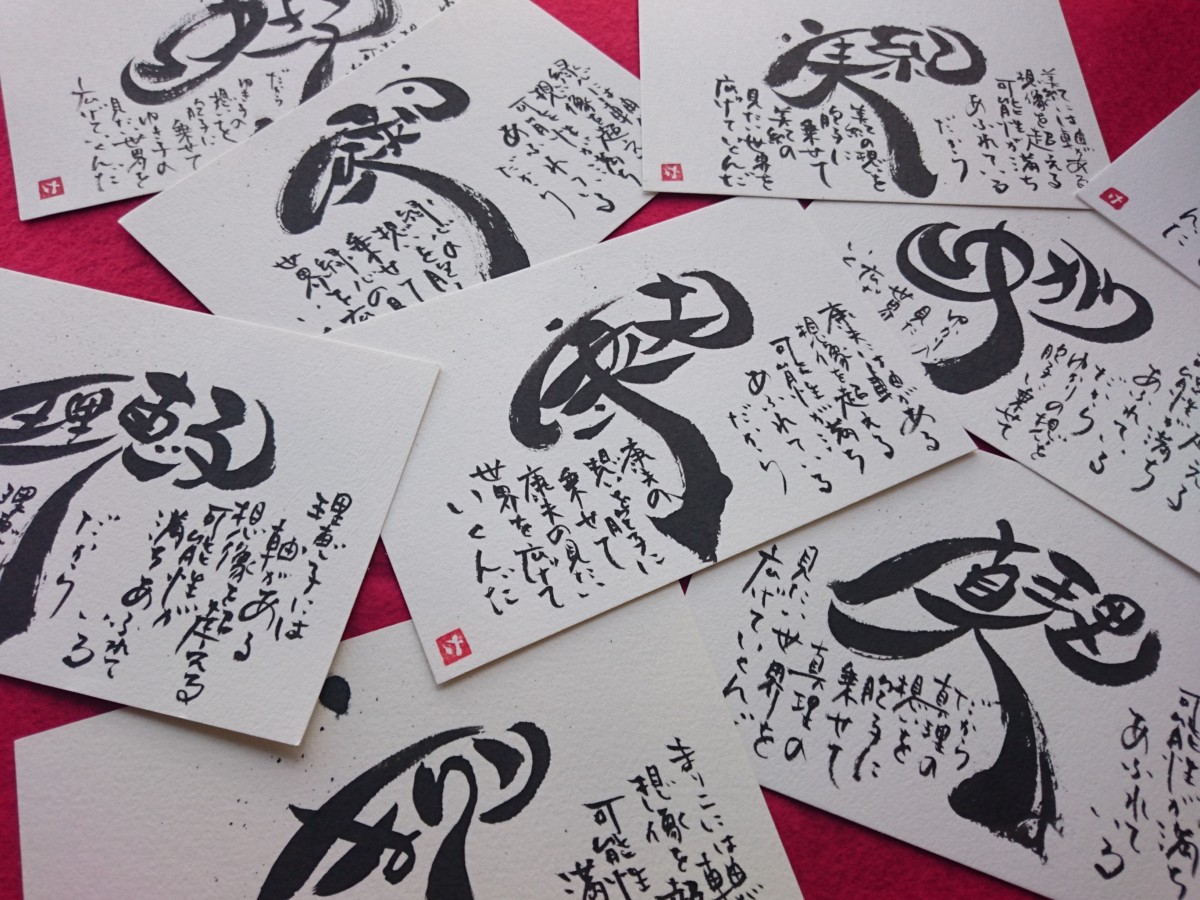 だから
ゆき子の
想いを
胞子に
乗せて
ゆき子の
見たい世界を
広げていくんだ
縁
緑には軸
想像を超え
可能性が満ち
あふれている
だから
緑の
想いを胞
乗せて
緑の見た
世界を広
い
美紀
美紀には軸がある
想像を超える
可能性が満ち
あふれている
だから
美紀の想いを
胞子に
乗せて
美紀の
見たい世界を
広げていくんだ
んだ
理恵子
理恵子には
軸がある
想像を超える
可能性が
満ちあふれて
いる
だから
理恵
康未
康未には軸がある
想像を超える
可能性が満ち
あふれている
だから
康未の
想いを胞子に
乗せて
康未の見たい
世界を広げて
いくんだ
ゆかり
可能性が満ち
あふれて
いる
だから
ゆかりの想いを
胞子に乗せて
ゆかり
見たい
世界
広が
く
真理
可能性が満ち
あふれて
いる
だから
真理の
想いを
胞子に
乗せて
真理の
見たい世界を
広げていくん
まりこ
まりこには軸が
想像を超
可能性
満